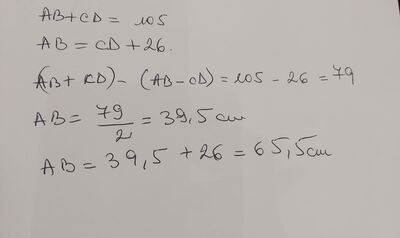 AB+CD = 105
AB = CD + 26.
(AB + CD) - (AB - CD) = 105 - 26 = 79
AB = 79/2 = 39,5 cm
AB = 39,5 + 26 = 65,5 cm